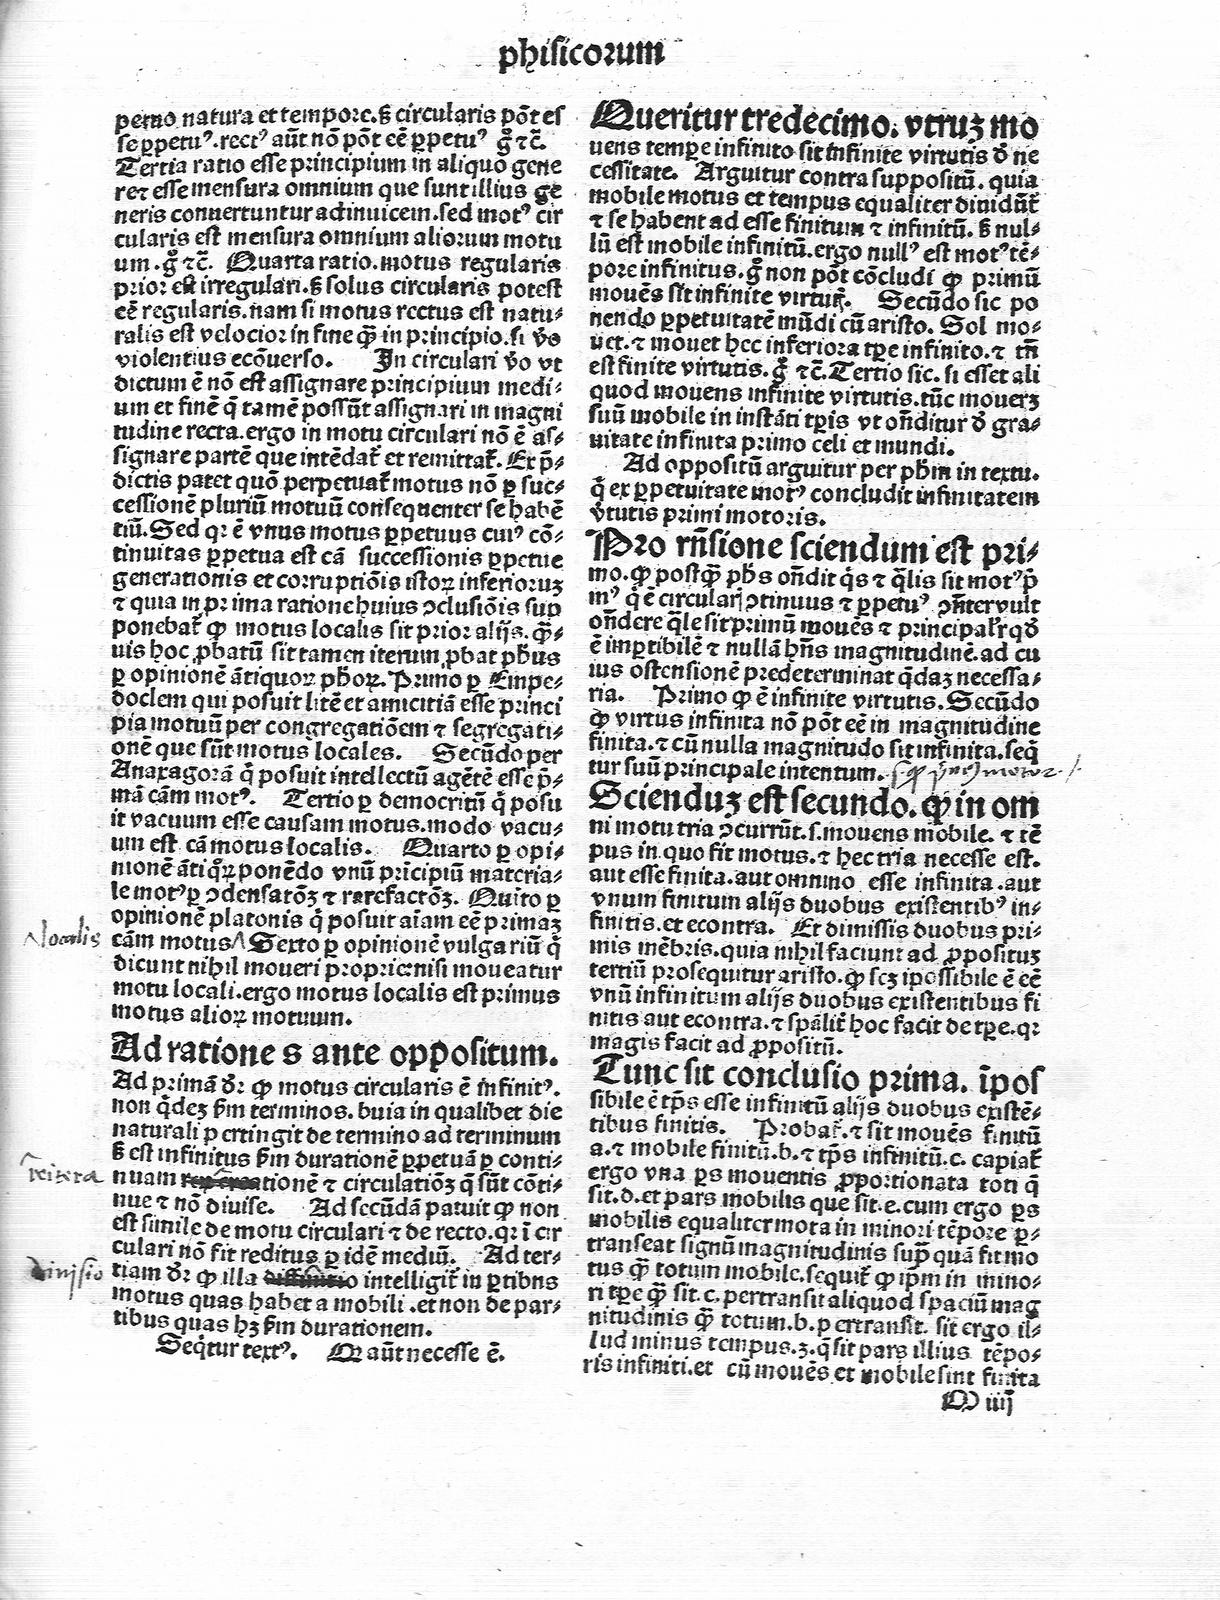 phisicorum
petuo natura et tempore. ꝫ circularis põt es
se ꝑpetuꝰ. rectꝰ aũt nõ põt eẽ ꝑpetuꝰ g̊ ⁊c̃.
Tertia ratio esse principium in aliquo gene
re ⁊ esse mensura omnium que sunt illius ge
neris conuertuntur adinuicem. sed motꝰ cir
cularis est mensura omnium aliorum motu
um. g̊ ⁊c̃. Quarta ratio. motus regularis
prior est irregulari. ꝫ solus circularis potest
eẽ regularis. nam si motus rectus est natu⸗
ralis est velocior in fine q̃ꝫ in principio. si ṽo
violentius ecõuerso. In circulari ṽo vt
dictum ẽ nõ est assignare principium medi⸗
um et finẽ q̃ tamẽ possũt assignari in magni
tudine recta. ergo in motu circulari nõ ẽ as⸗
signare partẽ que intẽdat̃ et remittat̃. Ex p̃⸗
dictis patet quõ perpetuat̃ motus nõ ꝑ suc⸗
cessionẽ pluriũ motuũ consequenter se habẽ
tiũ. Sed qꝛ ẽ vnus motus ꝑpetuus cuiꝰ cõ⸗
tinuitas ꝑpetua est cã successionis ꝑpetue
generationis et corruptiõis istoꝝ inferioruꝫ
⁊ quia in prima ratione huius ꝯclusiõis sup
ponebat̃ ꝙ motus localis sit prior alijs. q̃ꝫ⸗
uis hoc ꝓbatũ sit tamen iterum ꝓbat ph̃us
ꝑ opinionẽ ãtiquoꝝ ph̃oꝝ. Primo ꝑ Empe⸗
doclem qui posuit litẽ et amicitiã esse princi
pia motuũ per congregatiõem ⁊ segregati⸗
onẽ que sũt motus locales. Secũdo per
Anaxagorã q̃ posuit intellectũ agẽtẽ esse p̃⸗
mã cãm motꝰ. Tertio ꝑ democritũ q̃ posu
it vacuum esse causam motus. modo vacu⸗
um est cã motus localis. Quarto ꝑ opi⸗
nionẽ ãtiq̃oꝝ ponẽdo vnũ pricipiũ materia⸗
le motꝰ ꝑ ꝯdensatõꝫ ⁊ rarefactõꝫ. Quito ꝑ
opinionẽ platonis q̃ posuit aĩam eẽ primaꝫ
localis
cãm motus^ Sexto ꝑ opinionẽ vulgariũ q̃
dicunt nihil moueri proprie nisi moueatur
motu locali. ergo motus localis est primus
motus alioꝝ motuum.
Ad rationes ante oppositum.
Ad primã dr̃ ꝙ motus circularis ẽ infinitꝰ.
non q̃deꝫ s̃m terminos. huia in qualibet die
naturali pertingit de termino ad terminum
ꝫ est infinitus s̃m durationẽ ꝑpetuã ꝑ conti⸗
reitera
nuam tionẽ ⁊ circulatiõꝫ q̃ sũt cõti⸗
nue ⁊ nõ diuise. Ad secũdã patuit ꝙ non
est simile de motu circulari ⁊ de recto. qꝛ ĩ cir
culari nõ fit reditus ꝑ idẽ mediũ. Ad ter⸗
diuisio
tiam dr̃ ꝙ illa diffinitio intelligit̃ in ꝑtibus
motus quas habet a mobili. et non de par⸗
tibus quas hꝫ s̃m durationem.
Seq̃tur textꝰ. Q aũt necesse ẽ.
Queritur tredecimo. vtruꝫ mo
uens tempe infinito sit infinite virtutis d̃ ne
cessitate. Arguitur contra suppositũ. quia
mobile motus et tempus equaliter diuidũt̃
⁊ se habent ad esse finitum ⁊ infinitũ. ꝫ nul⸗
lũ est mobile infinitũ. ergo nullꝰ est motꝰ tẽ⸗
pore infinitus. g̊ non põt cõcludi ꝙ primũ
mouẽs sit infinite virtut̃. Secũdo sic po
nendo ꝑpetuitatẽ mũdi cũ aristo. Sol mo⸗
uet. ⁊ mouet hec inferiora tꝑe infinito. ⁊ tñ
est finite virtutis. g̊ ⁊c̃. Tertio sic. si esset ali
quod mouens infinite virtutis. tũc mouerꝫ
suũ mobile in instãti tꝑis vt oñditur d̃ gra⸗
uitate infinita primo celi et mundi.
Ad oppositũ arguitur per ph̃m in textu.
q̃ ex ꝑpetuitate motꝰ concludit infinitatem
ṽtutis primi motoris.
Pro rñsione sciendum est pri⸗
mo. ꝙ postq̃ꝫ ph̃s oñdit q̃s ⁊ q̃lis sit motꝰ p̃
mꝰ q̃ ẽ circularis ꝯtinuus ⁊ ꝑpetuꝰ ꝯñter vult
oñdere q̃le sit primũ mouẽs ⁊ principalr̃ qd̃
ẽ imꝑtibilẽ ⁊ nullã hñs magnitudinẽ. ad cu
ius ostensionẽ predeterminat q̃daꝫ necessa⸗
ria. Primo ꝙ ẽ infinite virtutis. Secũdo
ꝙ virtus infinita nõ põt eẽ in magnitudine
finita. ⁊ cũ nulla magnitudo sit infinita. seq̃
tur suũ principale intentum.
Scienduꝫ est secundo. ꝙ in om
ni motu tria ꝯcurrũt. s. mouens mobile. ⁊ tẽ
pus in quo fit motus. ⁊ hec tria necesse est.
aut esse finita. aut omnino esse infinita. aut
vnum finitum alijs duobus existentibꝰ in⸗
finitis. et econtra. Et dimissis duobus pri⸗
mis mẽbris. quia nihil faciunt ad ꝓpositum
tertiũ prosequitur aristo. ꝙ scꝫ ipossibile ẽ eẽ
vnũ infinitum alijs duobus existentibus fi
nitis aut econtra. ⁊ spãlit̃ hoc facit de tꝑe. qꝛ
magis facit ad ꝓpositũ.
Tunc sit conclusio prima. ĩpos
sibile ẽ tp̃s esse infinitũ alijs duobus existẽ⸗
tibus finitis. Probat̃. ⁊ sit mouẽs finitũ
a. ⁊ mobile finitũ. b. ⁊ tp̃s infinitũ. c. capiat̃
ergo vna ꝑs mouentis ꝓportionata toti q̃
sit. d. et pars mobilis que sit. e. cum ergo ꝑs
mobilis equaliter mota in minori tẽpore ꝑ⸗
transeat signũ magnitudinis supꝛ quã fit mo
tus q̃ꝫ totum mobile. sequit̃ ꝙ ip̃m in mino⸗
ri tꝑe q̃ꝫ sit. c. pertransit aliquod spaciũ mag
nitudinis q̃ꝫ totum. b. pertransit. sit ergo il⸗
lud minus tempus. ꝫ. q̃ sit pars illius tẽpo⸗
ris infiniti. et cũ mouẽs et mobile sint finita
M iiij